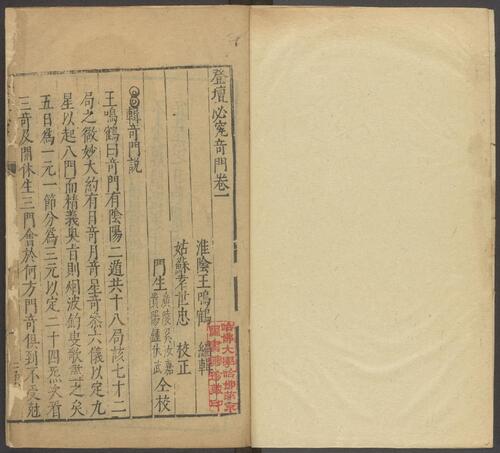 登壇必究奇門卷一
淮陰王鳴鶴 編輯
姑蘇李世忠 校正
門生
仝校
輯奇門説
王鳴鶴曰奇門有陰陽二遁共十八局該七十二
局之微妙大約有日奇月奇星奇叅六儀以定九
星以起八門而精義奧旨則烟波釣叟歌盡之矣
五日爲一元一節分爲三元以定二十四炁次看
三奇及開休生三門會於何方門奇俱到不受尅
哈佛大學哈佛燕京
圖書館珍藏印